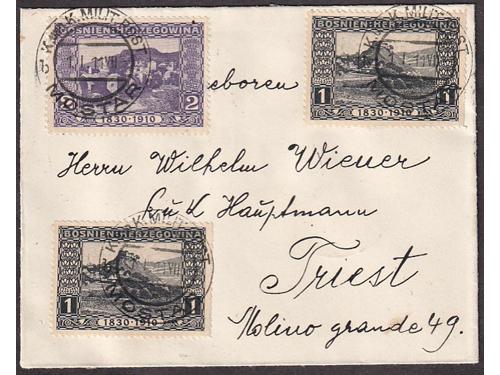 K.u.K. MILIT. POST
MOSTAR
BOSNIEN-HERZEGOWINA
2 2
1830-1910
K.u.K. MILIT. POST
MOSTAR
BOSNIEN-HERZEGOWINA
1 1
1830-1910
eboren
Herrn Wilhelm Wiener
k u k Hauptmann
K.u.K. MILIT. POST
MOSTAR
BOSNIEN-HERZEGOWINA
1 1
1830-1910
Triest
Molino grande 49.